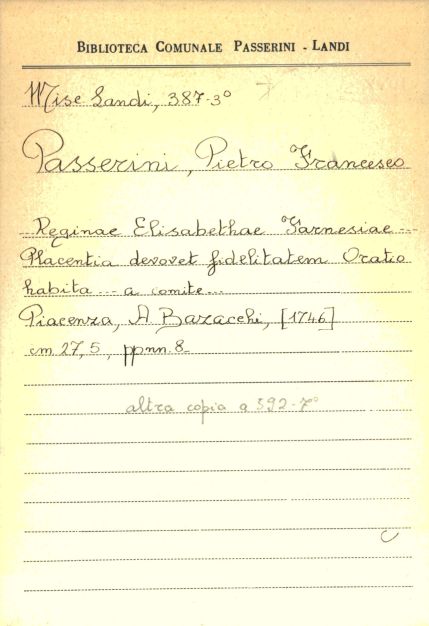 BIBLIOTECA COMUNALE PASSERINI - LANDI
Misc Landi, 387-3°
Passerini, Pietro Francesco
Reginae Elisabethae Farnesiae --
Placentia devovet fidelitatem Oratio
habita --- a comite...
Piacenza, A. Bazacchi, [1746]
cm 27,5, ppnn. 8
altra copia a 592-7°
C